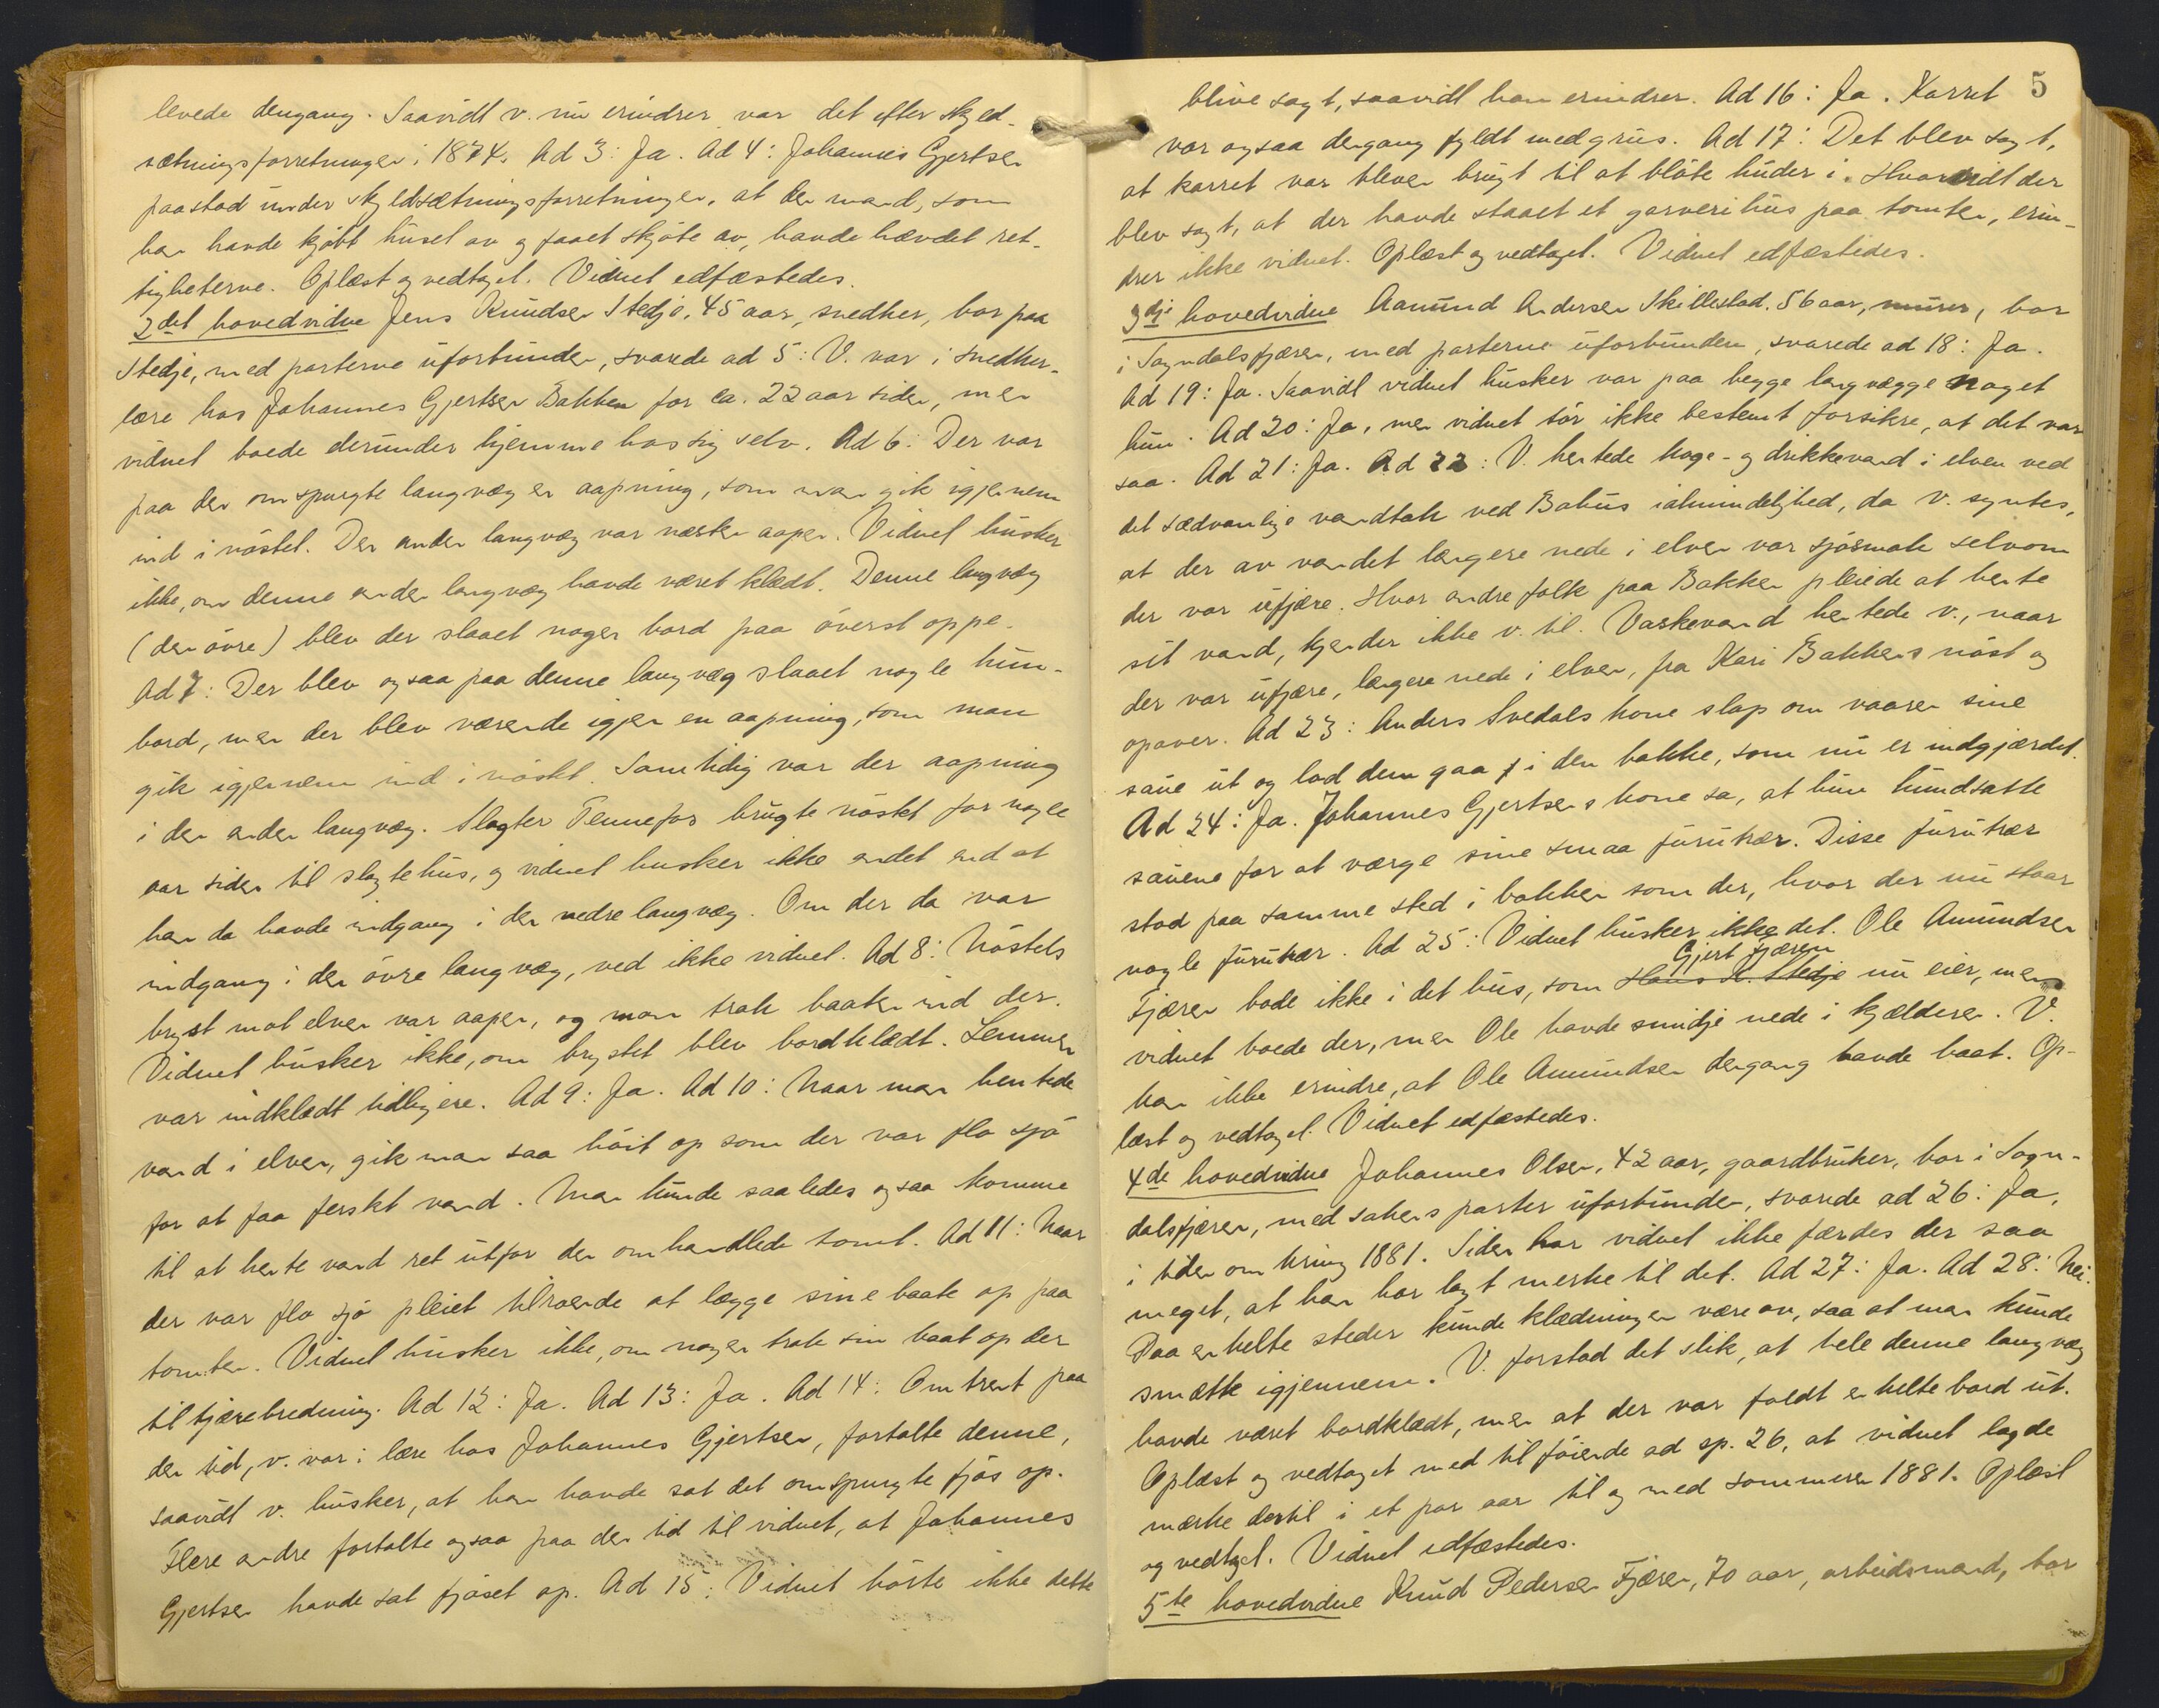 levede dengang. Saavidt v. nu erindrer var det efter skyld-
sætningsforretningen i 1874. Ad 3: Ja. Ad 4: Johannes Gjertsen
paastod under skyldsætningsforretningen, at den mand, som
han havde kjøbt huset av og faaet skjøte av, havde hævdet ret-
tigheterne. Oplæst og vedtaget. Vidnet edfæstedes.
2det hovedvidne Jens Knudsen Stedje, 45 aar, snedker, bor paa
Stedje, med parterne uforbunden, svarede ad 5: V. var i snedker-
lære hos Johannes Gjertsen Bakken for ca. 22 aar siden, men
vidnet boede derunder hjemme hos sig selv. Ad 6: Der var
paa den omspurgte langvæg en aapning, som man gik igjennem
ind i nøstet. Den anden langvæg var næsten aapen. Vidnet husker
ikke, om denne anden langvæg havde været klædt. Denne langvæg
(den øvre) blev der slaaet nogen bord paa øverst oppe.
Ad 7: Der blev ogsaa paa denne langvæg slaaet nogle hun-
bord, men der blev værende igjen en aapning, som man
gik igjennem ind i nøstet. Samtidig var der aapning
i den anden langvæg. Slagter Tennefos brugte nøstet for nogle
aar siden til slagtehus, og vidnet husker ikke andet end at
han da havde indgang i den nedre langvæg. Om der da var
indgang i den øvre langvæg, ved ikke vidnet. Ad 8: Nøstets
bryst mot elven var aapen, og man trak baaten ind der.
Vidnet husker ikke, om brystet blev bordklædt. Lemmen
var indklædt tidligere. Ad 9: Ja. Ad 10: Naar man hentede
vand i elven, gik man saa høit op som der var flo sjø
for at faa ferskt vand. Man kunde saaledes ogsaa komme
til at hente vand ret utfor den omhandlede tomt. Ad 11: Naar
der var flo sjø pleiet tilroende at lægge sine baate op paa
tomten. Vidnet husker ikke, om nogen trak sin baat op der
til tjærebredning. Ad 12: Ja. Ad 13: Ja. Ad 14: Omtrent paa
den tid, v. var i lære hos Johannes Gjertsen, fortalte denne,
saavidt v. husker, at han havde sat det omspurgte fjøs op.
Flere andre fortalte ogsaa paa den tid til vidnet, at Johannes
Gjertsen havde sat fjøset op. Ad 15: Vidnet hørte ikke dette
5
blive sagt, saavidt han erindrer. Ad 16: Ja. Karret
var ogsaa dengang fyldt med grus. Ad 17: Det blev sagt,
at karret var bleven brugt til at bløte huder i. Hvorvidt der
blev sagt, at der havde staaet et garverihus paa tomten, erin-
drer ikke vidnet. Oplæst og vedtaget. Vidnet edfæstedes.
3dje hovedvidne Aamund Andersen Skillestad, 56 aar, murer, bor
i Sogndalsfjæren, med parterne uforbunden, svarede ad 18: Ja.
Ad 19: Ja. Saavidt vidnet husker var paa begge langvægge noget
hun. Ad 20: Ja, men vidnet tør ikke bestemt forsikre, at det var
saa. Ad 21: Ja. Ad 22: V. hentede koge- og drikkevand i elven ved
det sædvanlige vandtak ved Bahus ialmindelighed, da v. syntes,
at der av vandet længere nede i elven var sjøsmak selvom
der var ufjære. Hvor andre folk paa Bakken pleiede at hente
sit vand, kjender ikke v. til. Vaskevand hentede v., naar
der var ufjære, længere nede i elven, fra Kari Bakkens nøst og
opover. Ad 23: Anders Svedals kone slap om vaaren sine
saue ut og lod dem gaa i den bakke, som nu er indgjærdet.
Ad 24: Ja. Johannes Gjertsens kone sa, at hun hundsatte
sauene for at værge sine smaa furutrær. Disse furutrær
stod paa samme sted i bakken som der, hvor der nu staar
nogle furutrær. Ad 25: Vidnet husker ikke det. Ole Amundsen
Gjert Fjæren
Fjæren bode ikke i det hus, som Hans H. Stedje nu eier, men
vidnet boede der, men Ole havde smidje nede i kjælderen. V.
kan ikke erindre, at Ole Amundsen dengang havde baat. Op-
læst og vedtaget. Vidnet edfæstedes.
4de hovedvidne Johannes Olsen, 42 aar, gaardbruker, bor i Sogn-
dalsfjæren, med sakens parter uforbunden, svarede ad 26: Ja,
i tiden omkring 1881. Siden har vidnet ikke færdes der saa
meget, at han har lagt merke til det. Ad 27: Ja. Ad 28: Nei.
Paa enkelte steder kunde klædningen være av, saa at man kunde
smætte igjennem. V. forstod det slik, at hele denne langvæg
havde været bordklædt, men at der var faldt enkelte bord ut.
Oplæst og vedtaget med tilføiende ad sp. 26, at vidnet lagde
mærke dertil i et par aar til og med sommeren 1881. Oplæst
og vedtaget. Vidnet edfæstedes.
5te hovedvidne Knud Pedersen Fjæren, 70 aar, arbeidsmand, bor